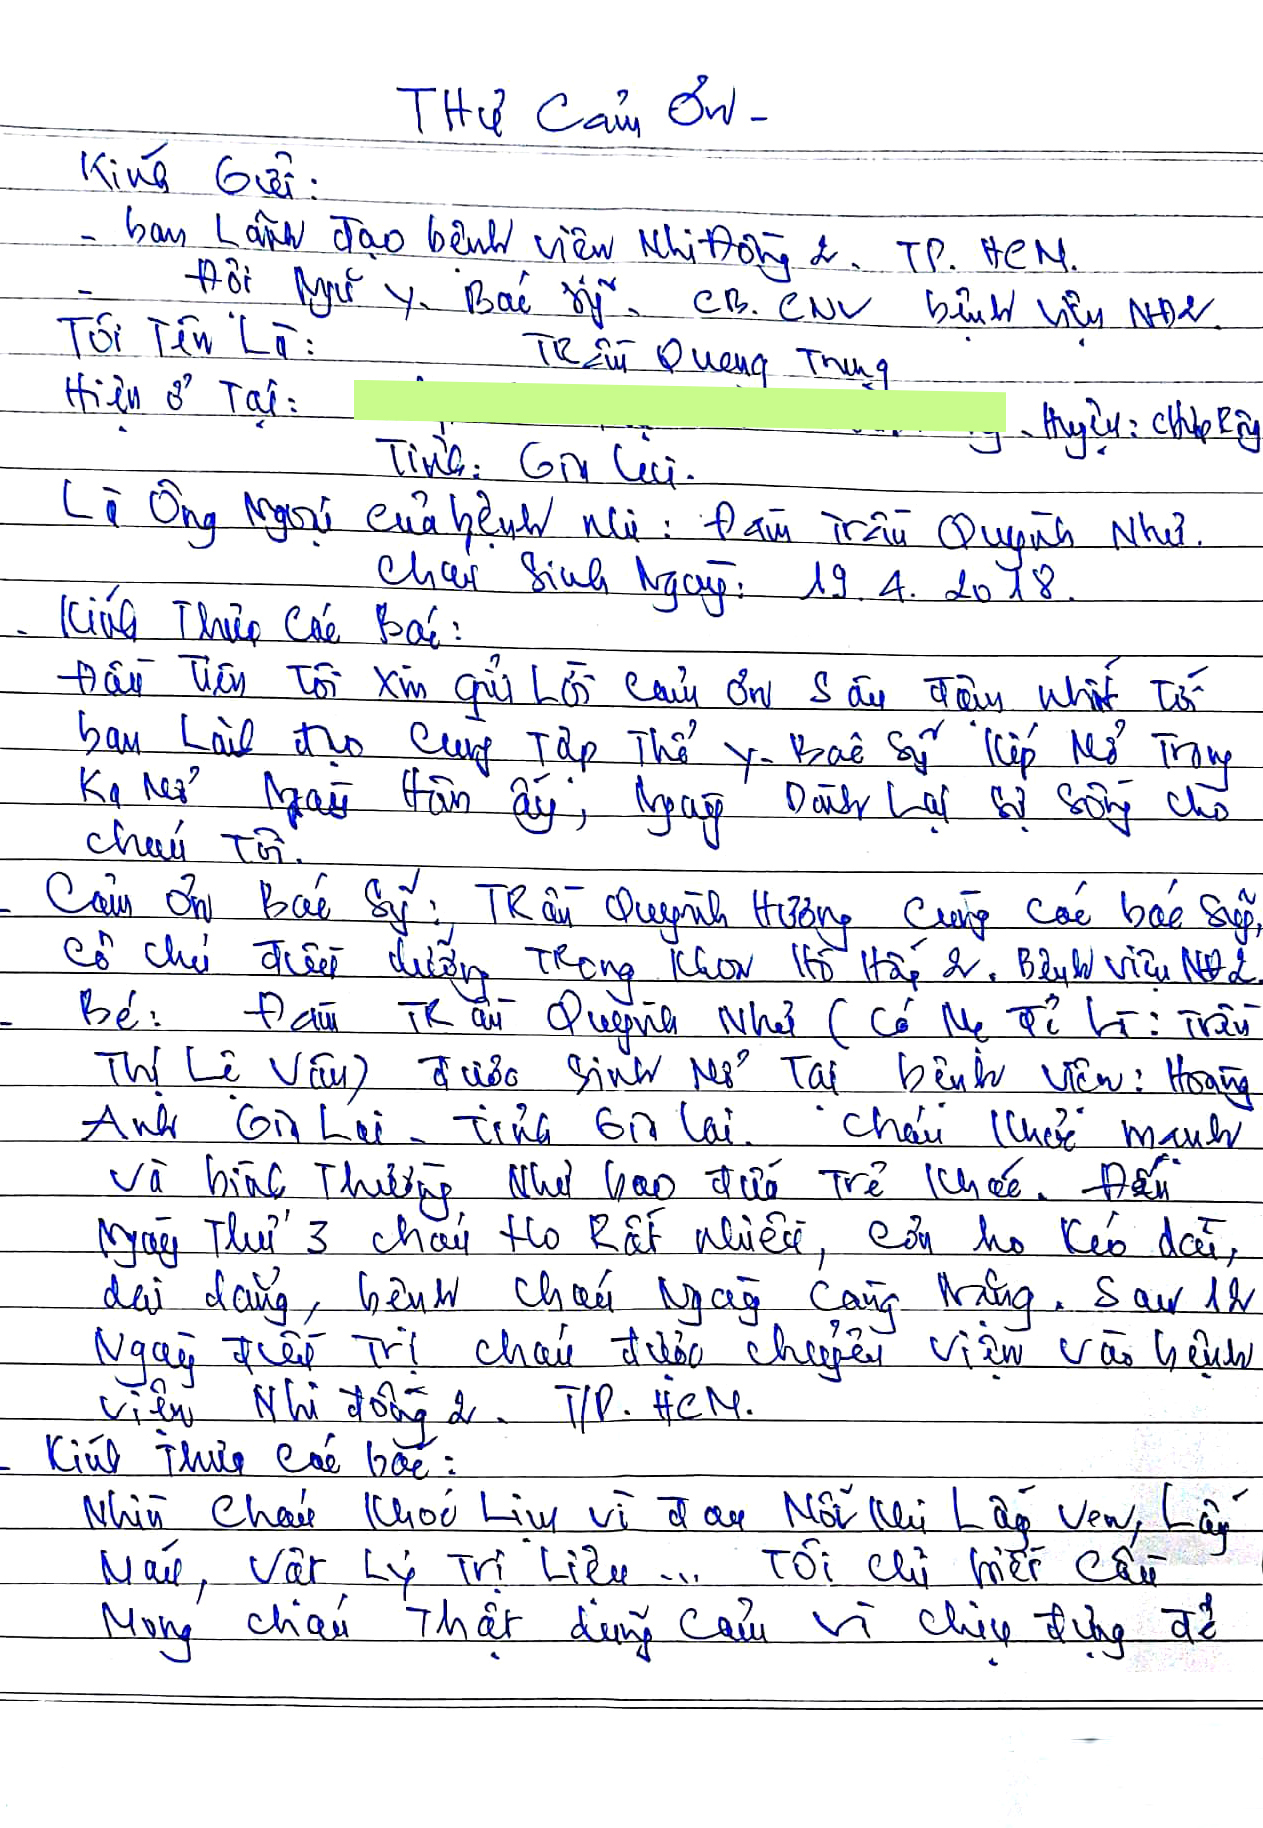 THƯ Cảm Ơn -
Kính Gửi:
- ban Lãnh đạo bệnh viện Nhi Đồng 2. TP. HCM.
- Đội Ngũ Y. Bác Sỹ. CB. CNV bệnh viện NĐ2.
Tôi Tên Là: TRần Quang Trung
Hiện ở Tại: Huyện:
Tỉnh: Gia Lai.
Là Ông Ngoại của bệnh nhi: Đàm Trần Quỳnh Như.
cháu Sinh Ngày: 19. 4. 2018.
- Kính Thưa Các Bác:
Đầu Tiên Tôi xin gửi Lời cảm ơn sâu đậm nhất Tới
ban Lãnh đạo Cùng Tập Thể Y- Bác Sỹ Trong
ấy, Ngày Dành Lại sự sống cho
cháu Tôi.
- Cảm ơn Bác Sỹ: TRần Quỳnh Hương Cùng các bác sỹ,
cô chú điều dưỡng TRong Khoa Hô Hấp 2. Bệnh viện NĐ2
- Bé: Đàm TRần Quỳnh Như (Có Mẹ đẻ là: Trần
Thị Lệ Vân) được sinh Nở Tại bệnh viện: Hoàng
Anh Gia Lai - Tỉnh Gia Lai. Cháu Khỏe mạnh
và bình Thường Như bao đứa Trẻ Khác. Đến
Ngày Thứ 3 cháu Ho Rất nhiều, cơn ho Kéo dài,
dai dẳng, bệnh cháu Ngày Càng Nặng. Sau 12
Ngày điều Trị cháu được chuyển viện vào bệnh
viện Nhi đồng 2. T/P. HCM.
- Kính Thưa các bác:
Nhìn Cháu Khóc Lịm vì đau Mỗi Khi Lấy Ven, Lấy
Máu, Vật Lý Trị Liệu ... Tôi chỉ biết Cầu
Mong cháu Thật dũng cảm và chịu đựng để